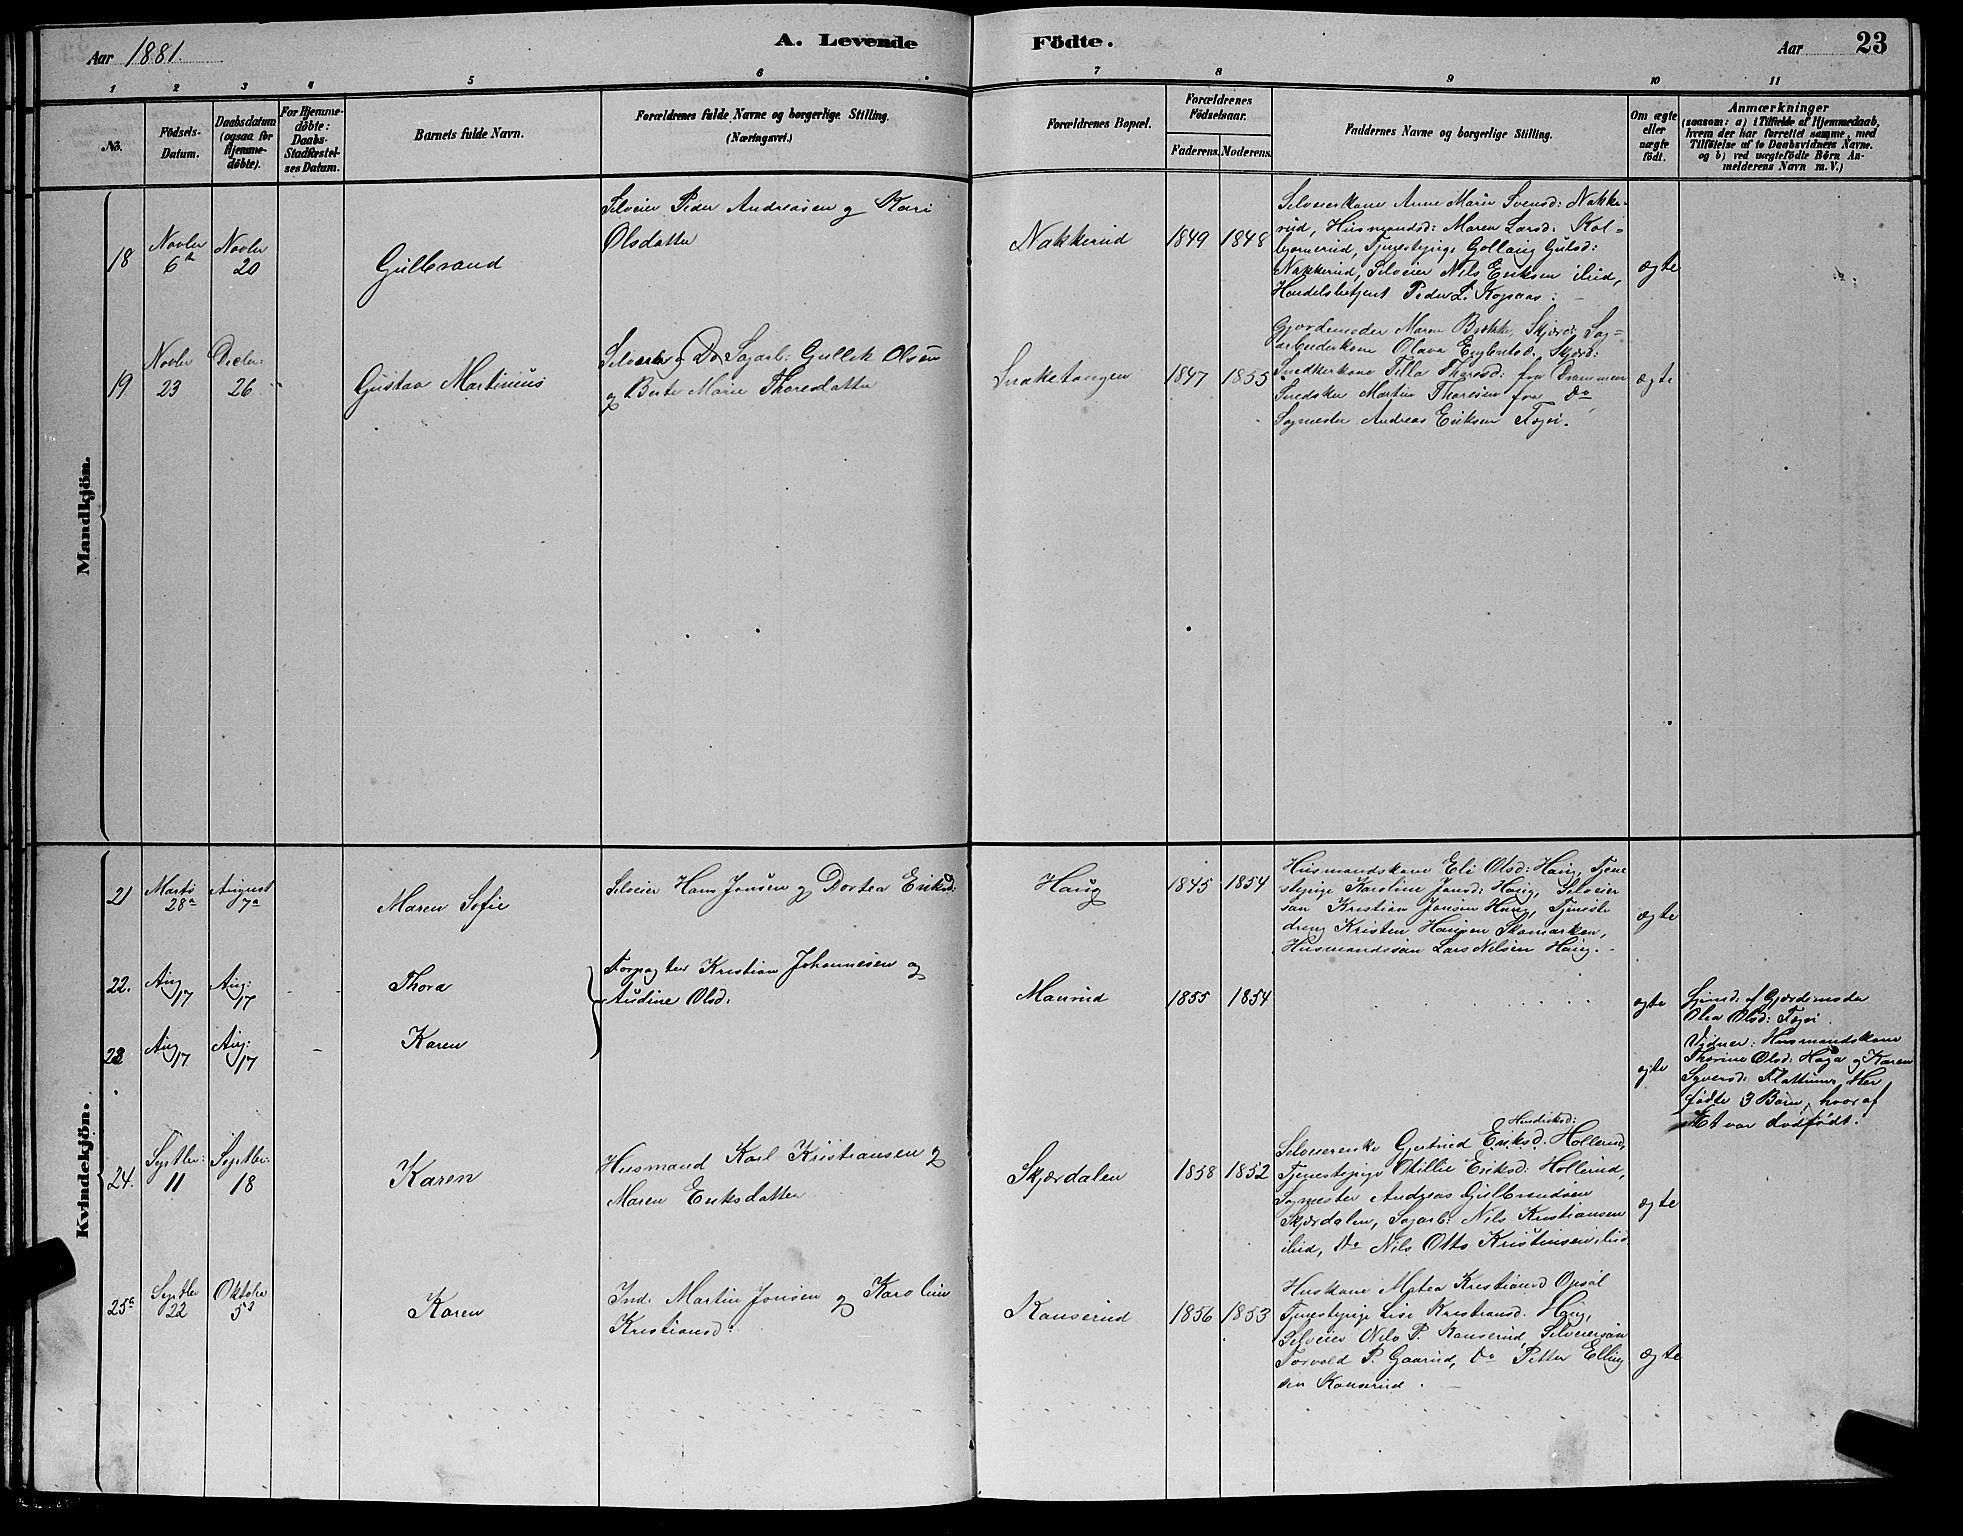 Aar 1881.
A. Levende
Födte.
Aar
23
1
2
3
4
5
6
7
8
9
10
11
No.
Födsels-
Datum.
Daabsdatum
(ogsaa for
Hjemme-
döbte).
For Hjemme-
döbte:
Daabs-
Stadfæstel-
ses Datum.
Barnets fulde Navn.
Forældrenes fulde Navne og borgerlige Stilling.
(Næringsvei.)
Forældrenes Bopæl.
Forældrenes
Födselsaar.
Faderens.
Moderens.
Faddernes Navne og borgerlige Stilling.
Om ægte
eller
uægte
födt.
Anmærkninger
(saasom: a) i Tilfælde af Hjemmedaab,
hvem der har forrettet samme, med
Tilföielse af to Daabsvidners Navne.
og b) ved uægtefödte Börn An-
melderens Navn m. V.)
Mandkjön.
18
Novbr
6te
Novbr
20
Gulbrand
Selveier Peder Andreasen og Kari
Olsdatter
Nakkerud
1849
1848
Selveierkone Anne Marie Svensd: Nakke-
rud, Husmandsd: Maren Larsd: Kol-
bjørnerud, Tjenestepige Gollaug Gulsd:
Nakkerud, Selveier Nils Eriksen ibid,
Handelsbetjent Peder L. Kopaas.
ægte
19
Novbr
23
Decbr:
26
Gustav Martinius
Selveier og Do Sagarb: Gullek Olsen
og Berte Marie Thoresdatter
Snaketangen
1847
1855
Gjordemoder Maren Skjærd: Sag=
arbeiderkone Olava Engbretsd. Skjærd:
Snedkerkone Tilla Thoresd: fra Drammen
Snedker Martin Thoresen fra Do,
Sagmester Andreas Eriksen Fagri.
ægte
Kvindekjön.
21
Marts
28de
August
7de
Maren Sofie
Selveier Hans Jonsen og Dortea Eriksd.
Haug
1845
1854
Husmandskone Eli Olsd: Haug, Tjene
stepige Karoline Jonsd: Haug, Selveier
søn Kristian Jonsen Haug, Tjeneste
dreng Kristen Hansen Skomarken,
Husmandssøn Lars Nilsen Haug.
ægte
22.
Aug
17
Aug:
17
Thora
Forpagter Kristian Johannesen og
Audine Olsd:
Maurud
1855
1854
ægte
Hjemd: af Gjordemoder
Olea Olsd: Fagri.
23
Aug
17
Aug:
17
Karen
ægte
Vidner: Husmandskone
Thorine Olsd: Haga og Karen
Syversd: Flattum. Her
fødte 3 Børn, hvoraf
Et var dødfødt.
24.
Septbr:
11
Septbr:
18
Karen
Husmand Karl Kristiansen og
Maren Eriksdatter
Skjærdalen
1858
1852
Hendriksd:
Selveierenke Gjertrud Eriksd. Hollerud,
Tjenestepige Otillie Eriksd: Hollerud,
Sagmester Andreas Gulbrandsen
Skjærdalen, Sagarb: Nils Kristiansen
ibid, Do Nils Otto Kristensen ibid
ægte
25de
Septbr
22
Oktober
5te
Karen
Ind: Martin Jonsen og Karoline
Kristiansd:
Kanserud
1856
1853
Huskone Matea Kristiansd Opsal
Tjenestepige Lise Kristiansd. Haug,
Selveier Nils P. Kanserud, Selveiersøn
Torvald P. Gaarud, Do Petter Elling
sen Kanserud.
ægte